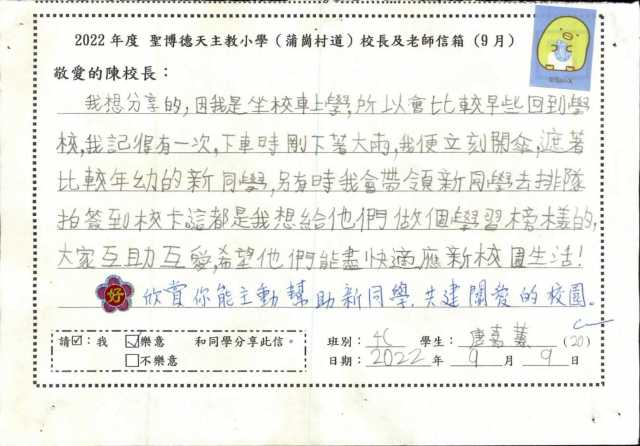 2022 年度 聖博德天主教小學（蒲崗村道）校長及老師信箱（9 月）
敬愛的陳校長：
我想分享的，因我是坐校車上學，所以會比較早些回到學
校，我記得有一次，下車時剛下著大雨，我便立刻開傘，遮著
比較年幼的新同學，另有時我會帶領新同學去排隊
拍簽到校卡這都是我想給他們做個學習榜樣的，
大家互助互愛，希望他們能盡快適應新校園生活！
好 欣賞你能主動幫助新同學，共建關愛的校園。
請☑：我 ☑樂意 和同學分享此信。 班別：4C 學生：唐嘉薰 (20)
□不樂意 日期：2022 年 9 月 9 日